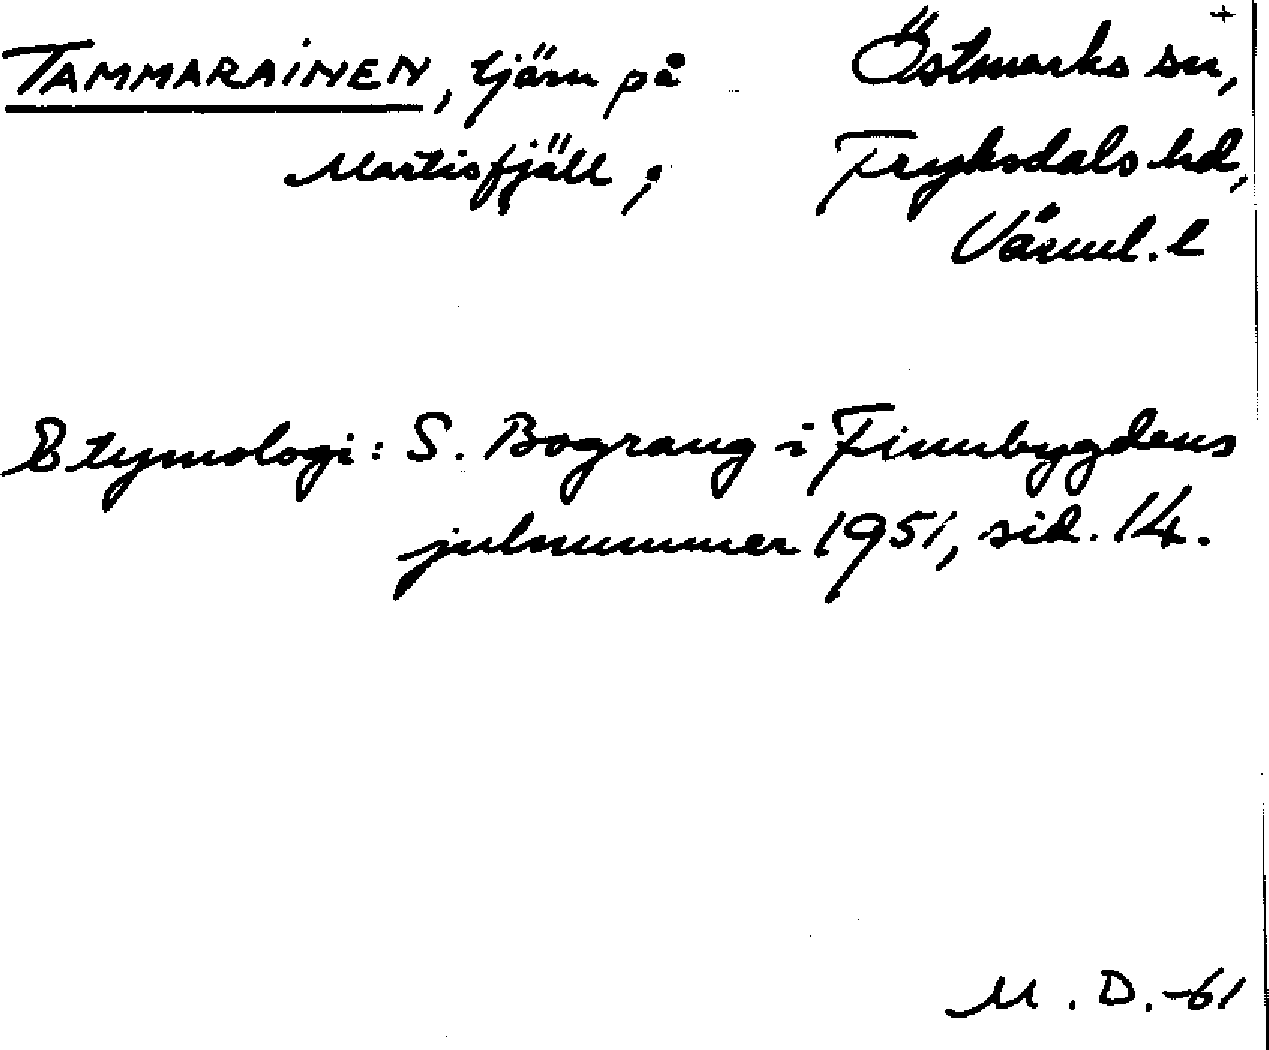 TAMMARAINEN, tjärn på
Martisfjäll;
Östmarks sn,
Fryksdals hd,
Värml. l
Etymologi: S. Bograng i Finnbygdens
julnummer 1951, sid. 14.
M. D. -61